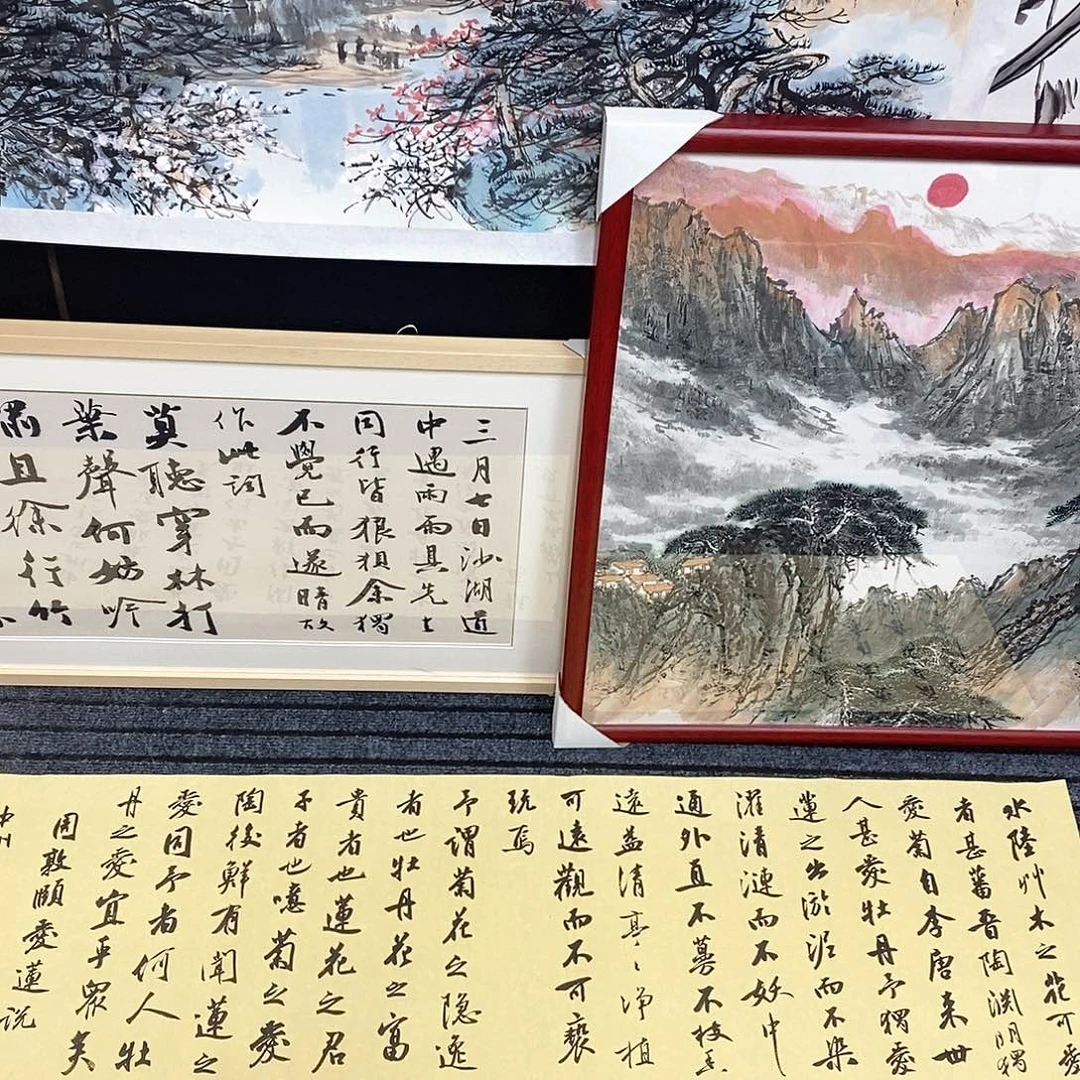 三月七日沙湖道
中遇雨雨具先去
同行皆狼狽余獨
不覺已而遂晴故
作此詞
莫聽穿林打
葉聲何妨吟
且徐行竹
水陸艸木之花可愛
者甚蕃晉陶淵明獨
愛菊自李唐来世
人甚愛牡丹予獨愛
蓮之出淤泥而不染
濯清漣而不妖中
通外直不蔓不枝香
遠益清亭〻淨植
可遠觀而不可褻
玩焉
予謂菊花之隐逸
者也牡丹花之富
貴者也蓮花之君
子者也噫菊之愛
陶後鮮有聞蓮之
愛同予者何人牡
丹之愛宜乎眾矣
周敦頤愛蓮説